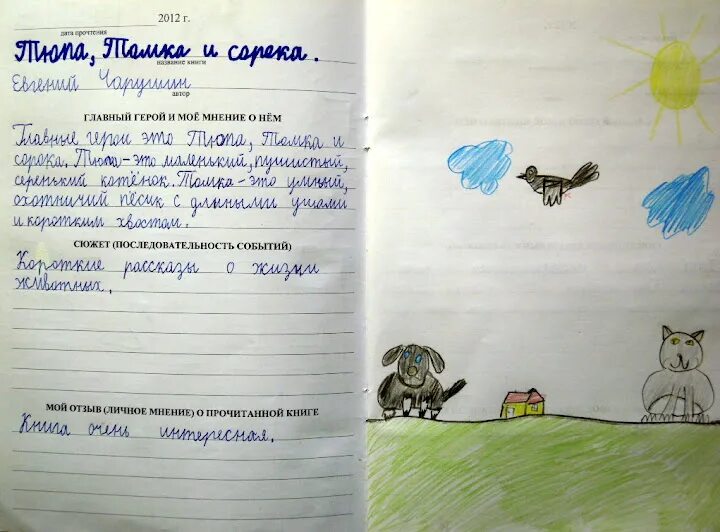 2012 г.
дата прочтения
Тюпа, Томка и сорока.
название книги
Евгений Чарушин
автор
ГЛАВНЫЙ ГЕРОЙ И МОЁ МНЕНИЕ О НЁМ
Главные герои это Тюпа, Томка и
сорока. Тюпа - это маленький, пушистый,
серенький котёнок. Томка - это умный,
охотничий пёсик с длиными ушами
и коротким хвостом.
СЮЖЕТ (ПОСЛЕДОВАТЕЛЬНОСТЬ СОБЫТИЙ)
Короткие рассказы о жизни
животных.
МОЙ ОТЗЫВ (ЛИЧНОЕ МНЕНИЕ) О ПРОЧИТАННОЙ КНИГЕ
Книга очень интересная.